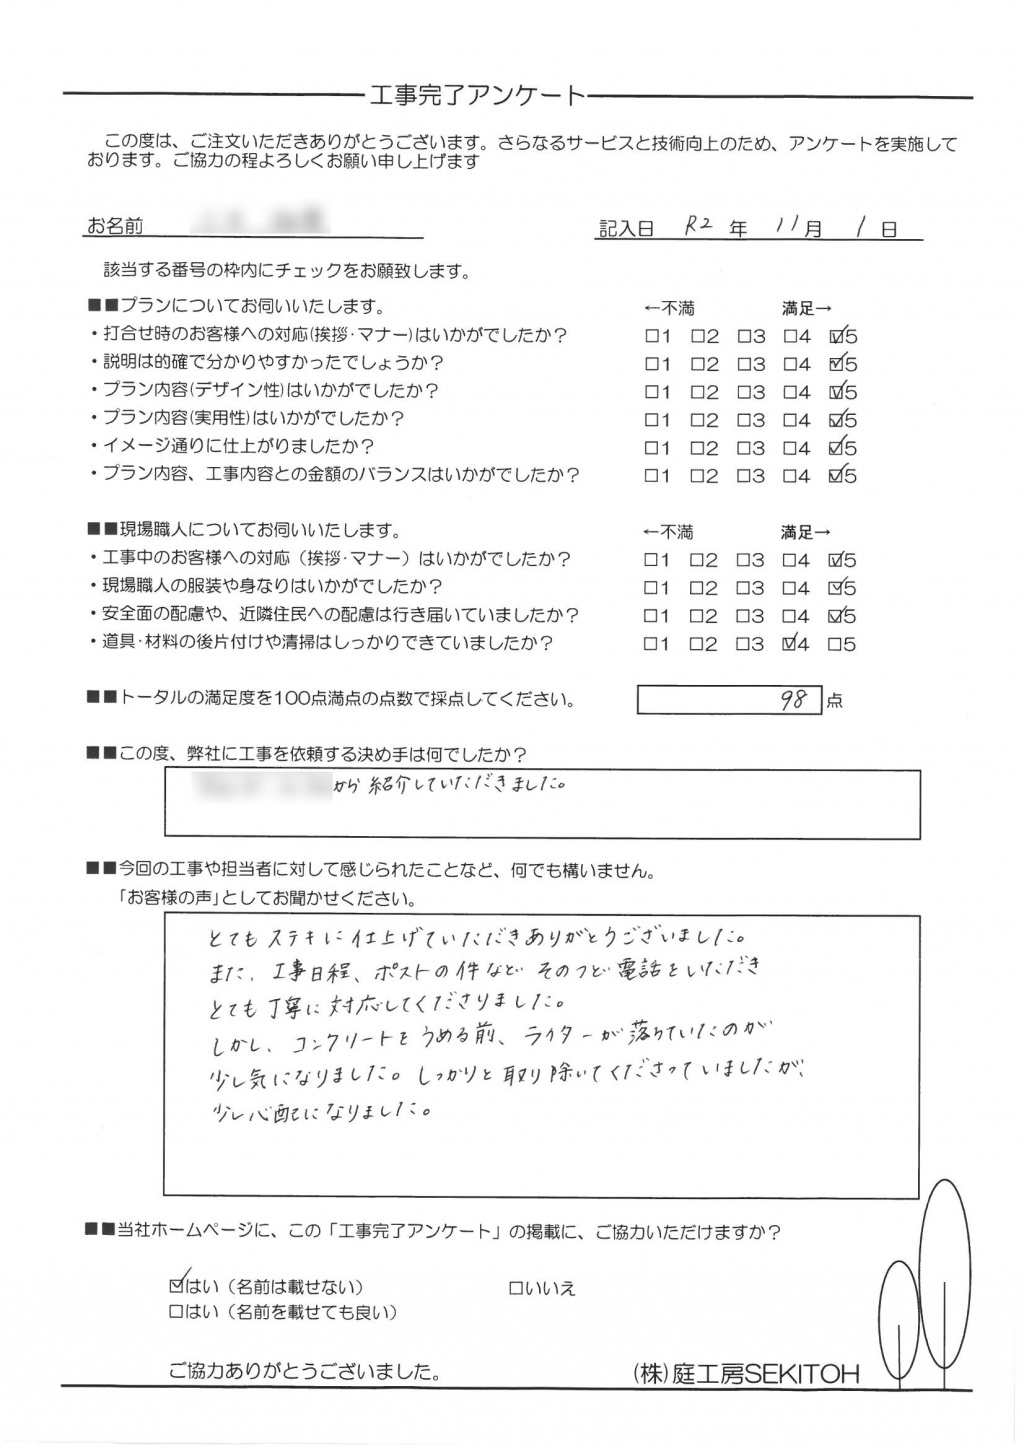 工事完了アンケート
この度は、ご注文いただきありがとうございます。さらなるサービスと技術向上のため、アンケートを実施して
おります。ご協力の程よろしくお願い申し上げます
お名前 記入日 R2 年 11月 1 日
該当する番号の枠内にチェックをお願致します。
■■プランについてお伺いいたします。 ←不満 満足→
・打合せ時のお客様への対応(挨拶・マナー)はいかがでしたか? □1 □2 □3 □4 ☑5
・説明は的確で分かりやすかったでしょうか? □1 □2 □3 □4 ☑5
・プラン内容(デザイン性)はいかがでしたか? □1 □2 □3 □4 ☑5
・プラン内容(実用性)はいかがでしたか? □1 □2 □3 □4 ☑5
・イメージ通りに仕上がりましたか? □1 □2 □3 □4 ☑5
・プラン内容、工事内容との金額のバランスはいかがでしたか? □1 □2 □3 □4 ☑5
■■現場職人についてお伺いいたします。 ←不満 満足→
・工事中のお客様への対応（挨拶・マナー）はいかがでしたか? □1 □2 □3 □4 ☑5
・現場職人の服装や身なりはいかがでしたか? □1 □2 □3 □4 ☑5
・安全面の配慮や、近隣住民への配慮は行き届いていましたか? □1 □2 □3 □4 ☑5
・道具・材料の後片付けや清掃はしっかりできていましたか? □1 □2 □3 ☑4 □5
■■トータルの満足度を100点満点の点数で採点してください。 98 点
■■この度、弊社に工事を依頼する決め手は何でしたか?
から紹介していただきました。
■■今回の工事や担当者に対して感じられたことなど、何でも構いません。
「お客様の声」としてお聞かせください。
とてもステキに仕上げていただきありがとうございました。
また、工事日程、ポストの件など そのつど電話をいただき
とても丁寧に対応してくださりました。
しかし、コンクリートをうめる前、ライターが落ちていたのが
少し気になりました。しっかりと取り除いてくださっていましたが、
少し心配になりました。
■■当社ホームページに、この「工事完了アンケート」の掲載に、ご協力いただけますか?
☑はい（名前は載せない） □いいえ
□はい（名前を載せても良い）
ご協力ありがとうございました。 (株)庭工房SEKITOH